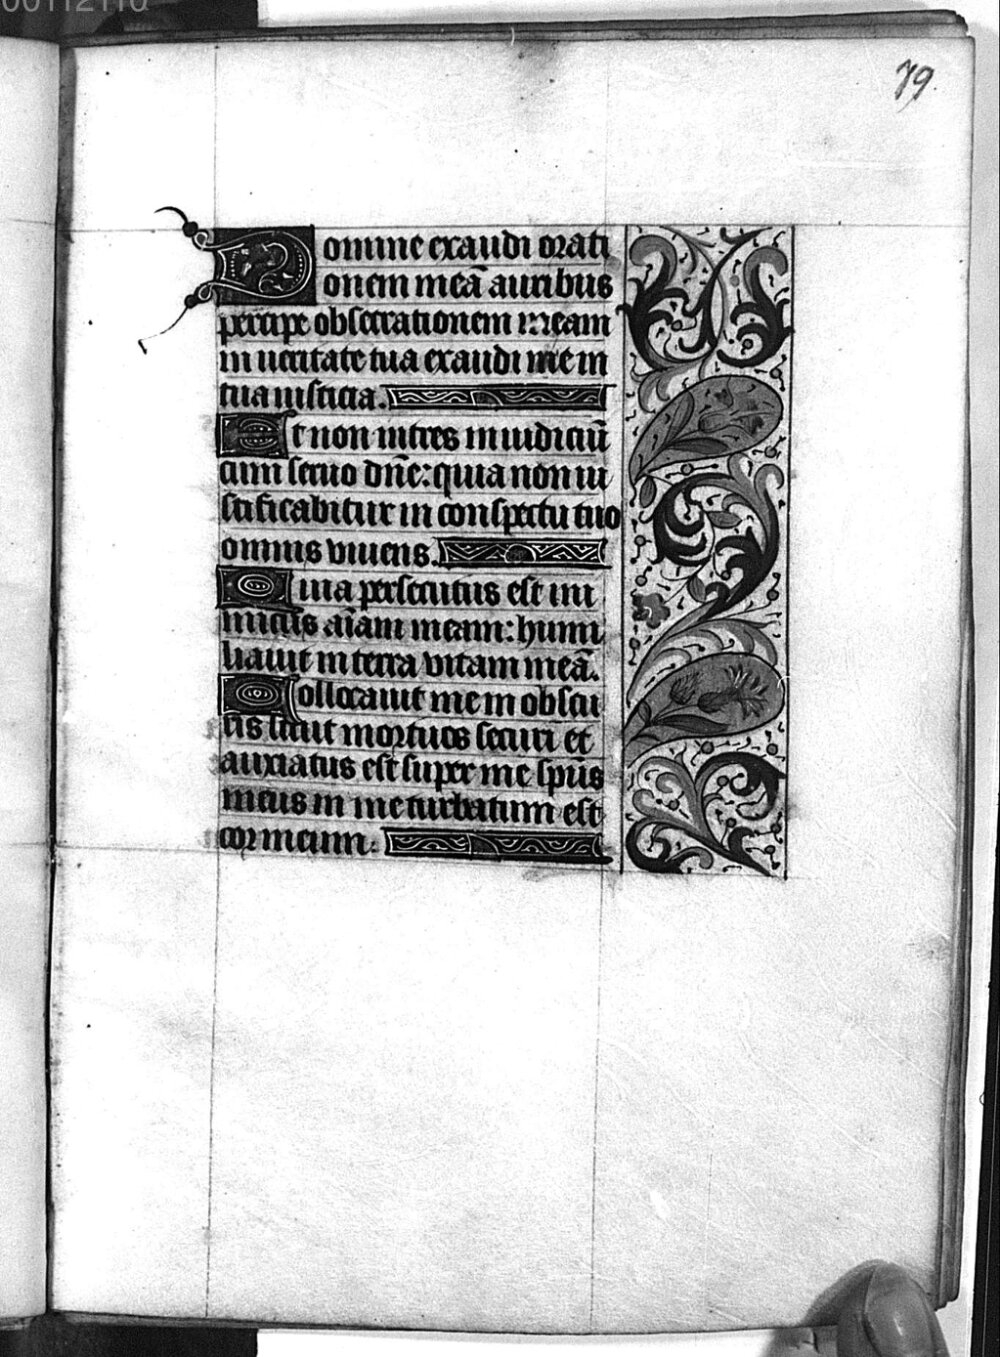 00112110
79.
Domine exaudi orati
onem meã auribus
percipe obsecrationem meam
in ueritate tua exaudi me in
tua iusticia.
Et non intres in iudiciũ
cum seruo dñe: quia non iu
stificabitur in conspectu tuo
omnis viuens.
Quia persecutus est ini
micus aĩam meam: humi
liauit in terra vitam meã.
Collocauit me in obscu
ris sicut mortuos seculi et
anxiatus est super me spũs
meus in me turbatum est
cor meum.